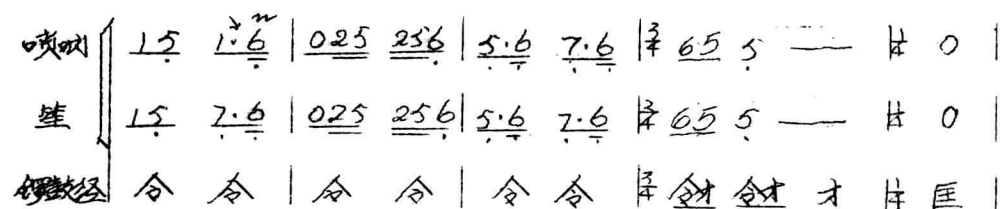 唢呐 15 1·6 | 025 256 | 5·6 7·6 | 3/4 65 5 — | 1/4 0 |
笙 15 7·6 | 025 256 | 5·6 7·6 | 3/4 65 5 — | 1/4 0 |
锣鼓经 令 令 | 令 令 | 令 令 | 3/4 令才 令才 才 | 1/4 匡 |